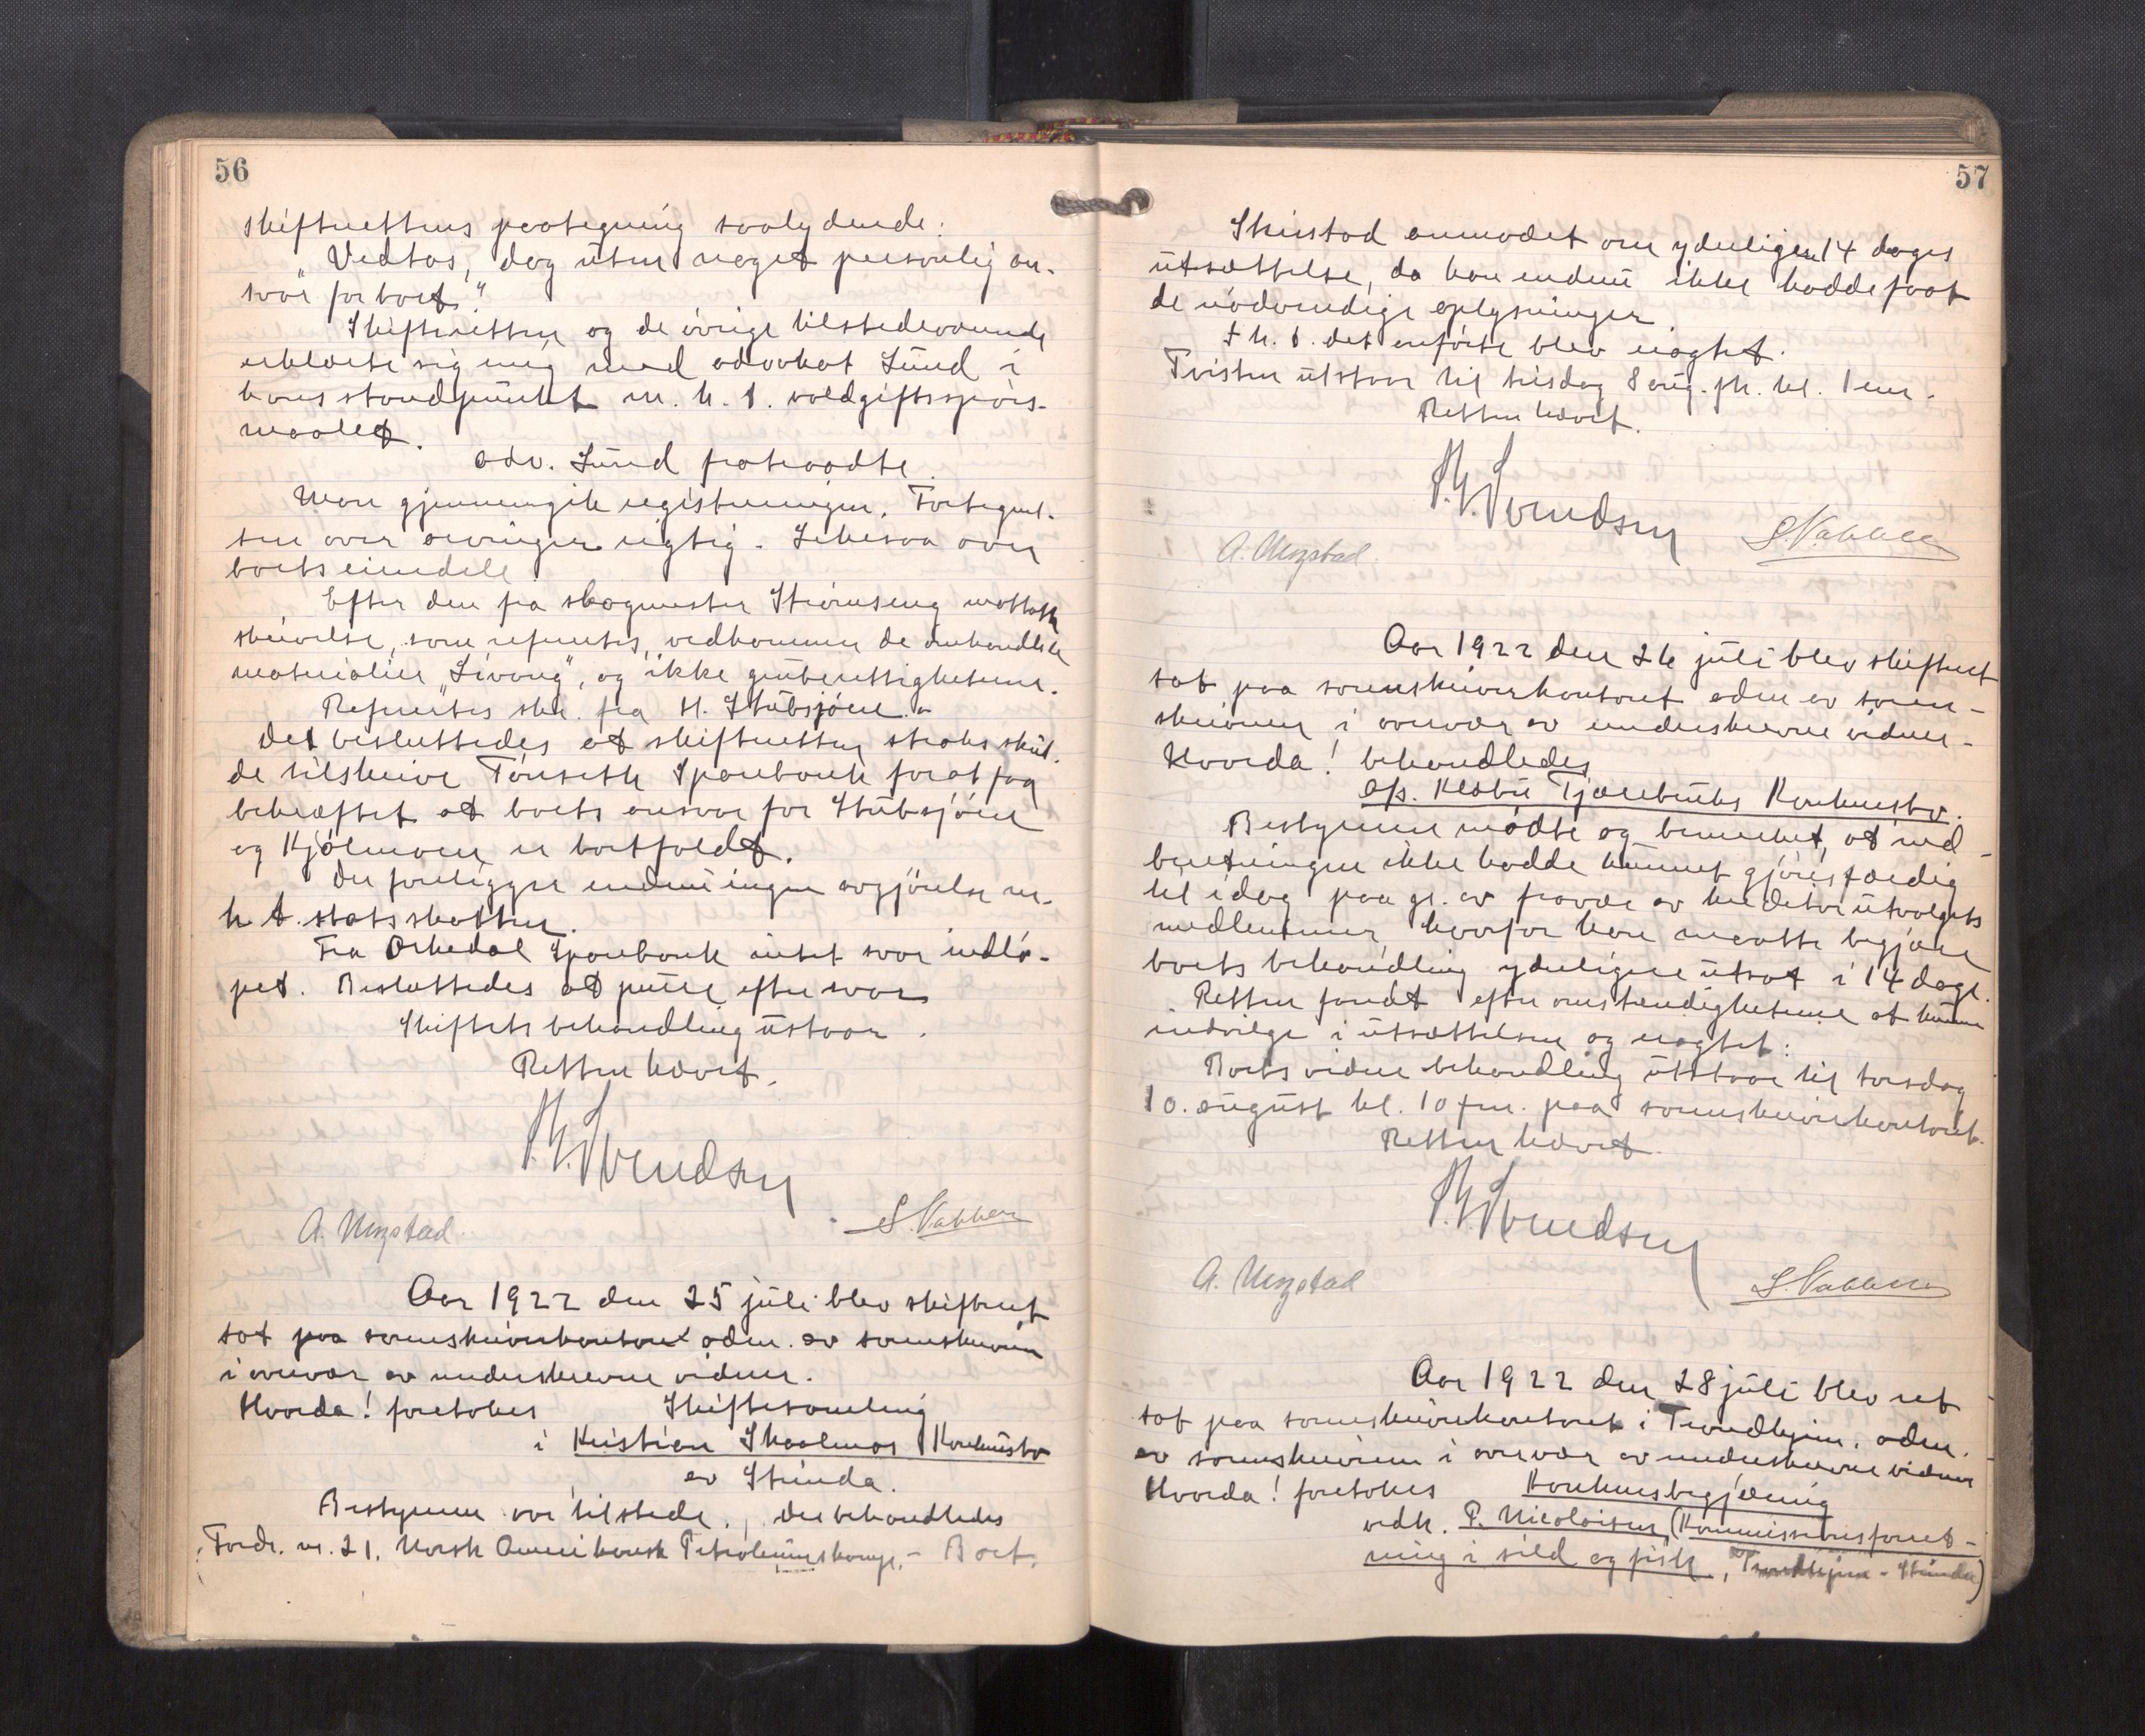 56
skifterettens paategning saalydende:
"Vedtas, dog uten noget personlig an-
svar for boet."
Skifteretten og de øvrige tilstedeværende
erklærte sig enig med advokat Lund i
hans standpunkt m. h. t. voldgiftsspørs-
maalet.
Adv. Lund fratraadte.
Man gjennemgik registreringen. Fortegnel-
sen over arvinger rigtig. Likesaa over
boets eiendele
Efter den fra skogmester Strømseng mottatte
skrivelse, som refertes, vedkommer de omhandlede
materialier "Livang", og ikke gruberettighetene.
Refertes skr. fra H. Stubsjøen.
Det besluttedes at skifteretten straks skul-
de tilskrive Tønseth Sparebank for at faa
bekræftet at boets ansvar for Stubsjøen
og Kjølmoen er bortfaldt.
Der foreligger endnu ingen avgjørelse m.
h. t. statsskatten.
Fra Orkedal Sparebank intet svar indlø-
pet. Besluttedes at purre efter svar
Skiftets behandling utstaar.
Retten hævet.
Svendsen
A. Ungstad
S. Nakken
Aar 1922 den 25 juli blev skifteret
sat paa sorenskriverkontoret adm. av sorenskriveren
i overvær av underskrevne vidner.
Hvorda! foretokes Skiftesamling
i Kristian Skaalmos Konkursbo
av Strinda.
Bestyreren var tilstede. Der behandledes
Fordr. nr. 21. Norsk Amerikansk Petroleumskomp. - Boet.
57
Skirstad anmodet om yderligere 14 dages
utsættelse, da han endnu ikke hadde faat
de nødvendige oplysninger.
I h. t. det anførte blev eragtet.
Tvisten utstaar til tirsdag 8 aug. ph. kl. 1 em.
Retten hævet.
Svendsen
A. Ungstad
S. Nakken
Aar 1922 den 26 juli blev skifteret
sat paa sorenskriverkontoret adm av soren-
skriveren i overvær av underskrevne vidner.
Hvorda! behandledes
A/s. Klæbu Tjærebruks Konkursbo.
Bestyreren mødte og bemerket, at ind-
beretningen ikke hadde kunnet gjøres færdig
til idag paa gr. av fravær av kreditorutvalgets
medlemmer, hvorfor han maatte begjære
boets behandling yderligere utsat i 14 dage.
Retten fandt efter omstændighetene at kunne
indvilge i utsættelsen og eragtet:
Boets videre behandling utstaar til torsdag
10. august kl. 10 fm. paa sorenskriverkontoret.
Retten hævet.
Svendsen
A. Ungstad
S. Nakken
Aar 1922 den 28 juli blev ret
sat paa sorenskriverkontoret i Trondhjem, adm.
av sorenskriveren i overvær av underskrevne vidner
Hvorda! foretokes Konkursbegjæring
vedk. P. Nicolaisen, (Kommissionsforret-
ning i sild og fisk, Trondhjem - Strinda)